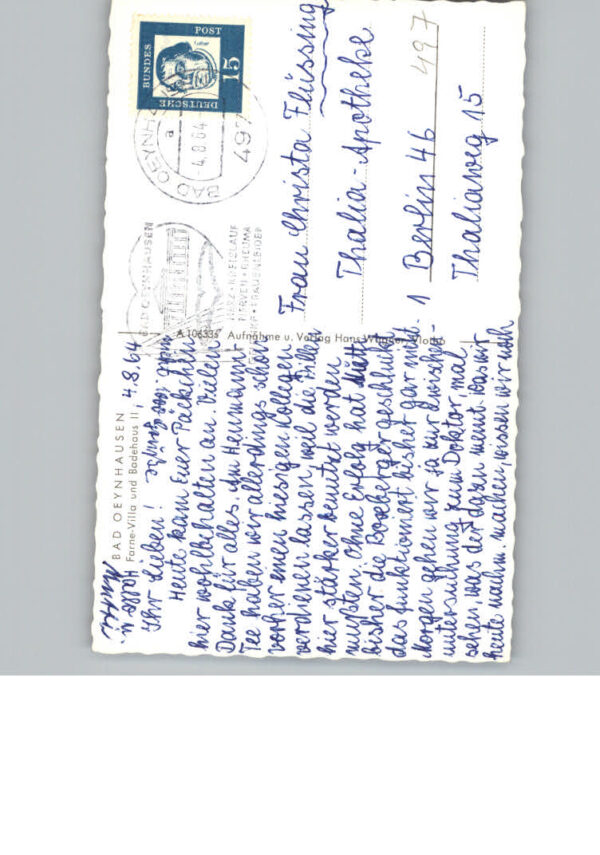 BAD OEYNHAUSEN
Farne-Villa und Badehaus II
4.8.64
Ihr Lieben!
Heute kam Euer Päckchen
hier wohlbehalten an. Vielen
Dank für alles. Am Heumann's
Tee haben wir allerdings schon
vorher einen hiesigen Kollegen
verdienen lassen, weil die Pillen
hier stärker benutzt werden
mußten, ohne Erfolg. hat Mutti
bisher die Boxberger geschluckt
das funktioniert bisher gar nicht.
Morgen gehen wir ja zur Zwischen-
untersuchung zum Doktor, mal
sehen, was der dazu meint. Was wir
heute nachm. machen, wissen wir noch
nicht.
A 106335 Aufnahme u. Verlag Hans Wagner, Vlotho
DEUTSCHE BUNDESPOST
15
Luther
497 BAD OEYNHAUSEN
a
-4.8.64
BAD OEYNHAUSEN
HERZ · KREISLAUF
NERVEN · RHEUMA
FRAUENLEIDEN
Frau Christa Flüssing
Thalia-Apotheke
1 Berlin 46
497
Thaliaweg 15